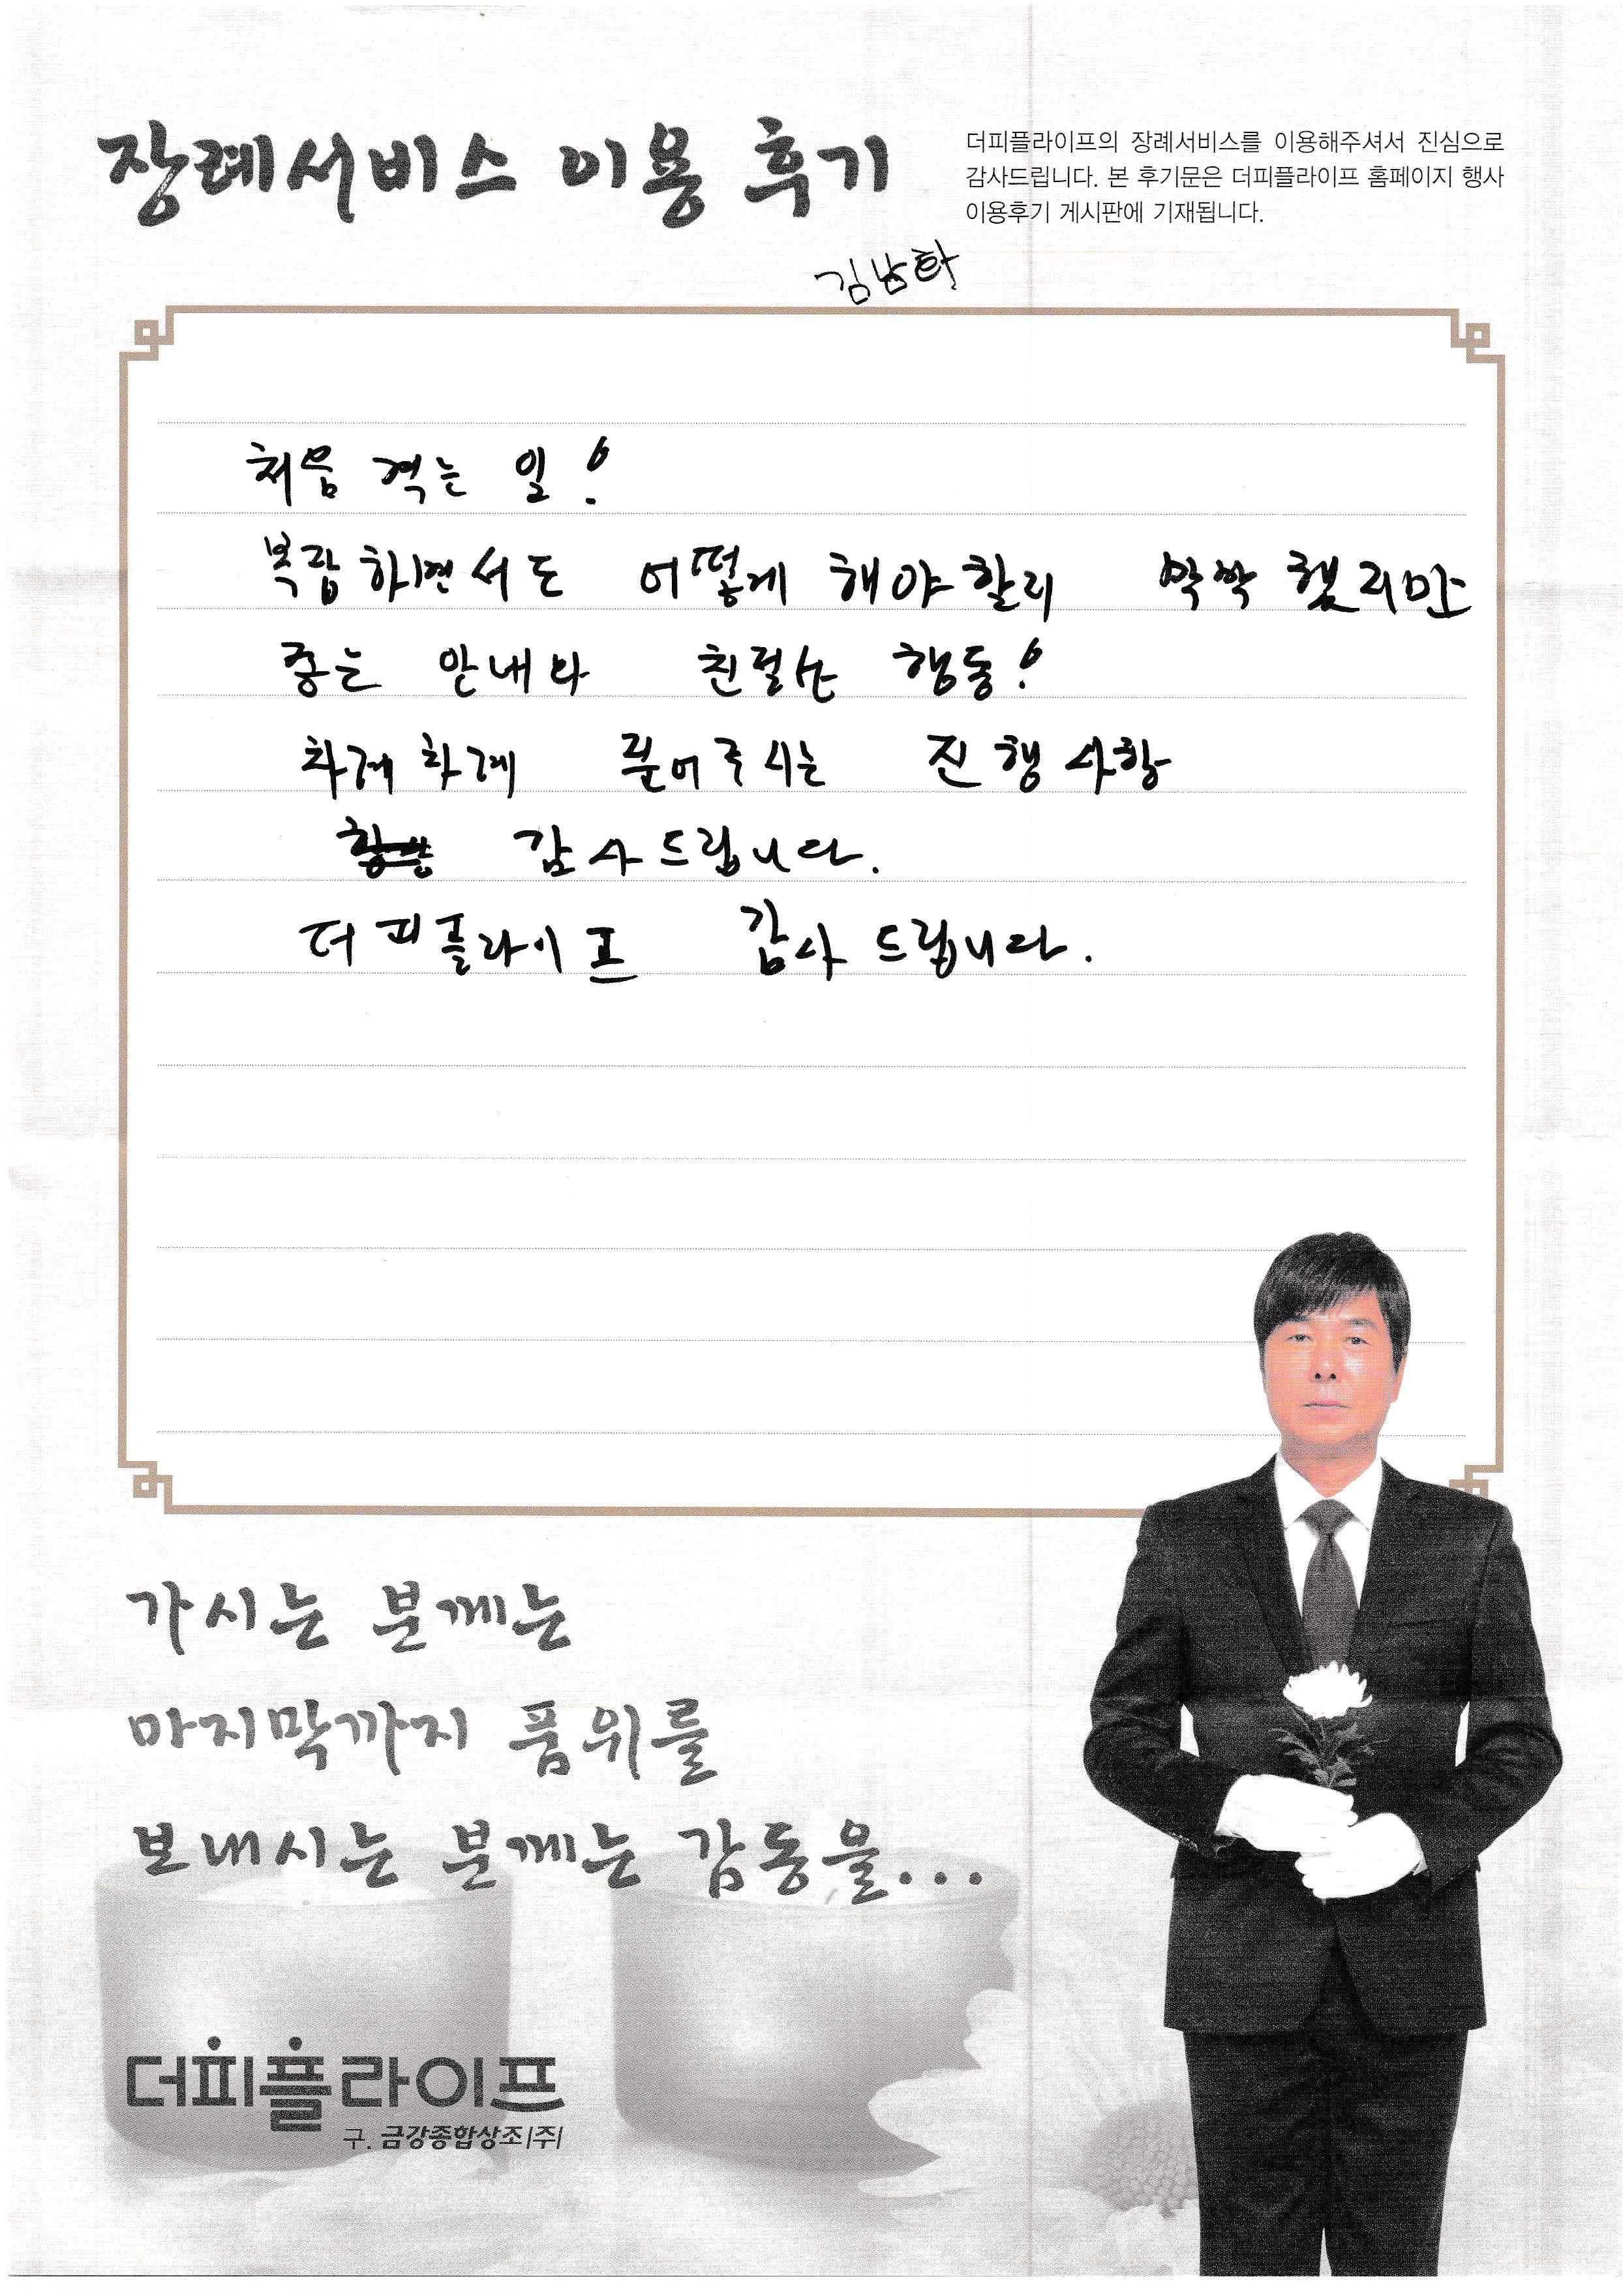 장례서비스 이용 후기
더피플라이프의 장례서비스를 이용해주셔서 진심으로
감사드립니다. 본 후기문은 더피플라이프 홈페이지 행사
이용후기 게시판에 기재됩니다.
김남학
처음 격는 일!
복잡하면서도 어떻게 해야할리 막막했리만
좋는 안내와 친절한 행동!
차게차게 풀어주시는 진행사항
감사드립니다.
더피플라이프 감사드립니다.
가시는 분께는
마지막까지 품위를
보내시는 분께는 감동을...
더피플라이프
구. 금강종합상조(주)